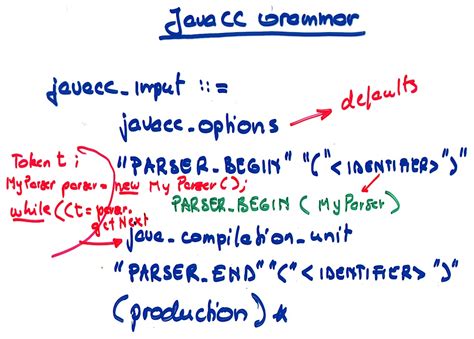 JavaCC Grammar
javacc_input ::=
javacc_options → defaults
Token t ;
"PARSER_BEGIN" "(" <IDENTIFIER> ")"
MyParser parser = new MyParser();
PARSER_BEGIN ( MyParser )
while ((t = parser.
getNext
java_compilation_unit
"PARSER_END" "(" <IDENTIFIER> ")"
(production)*